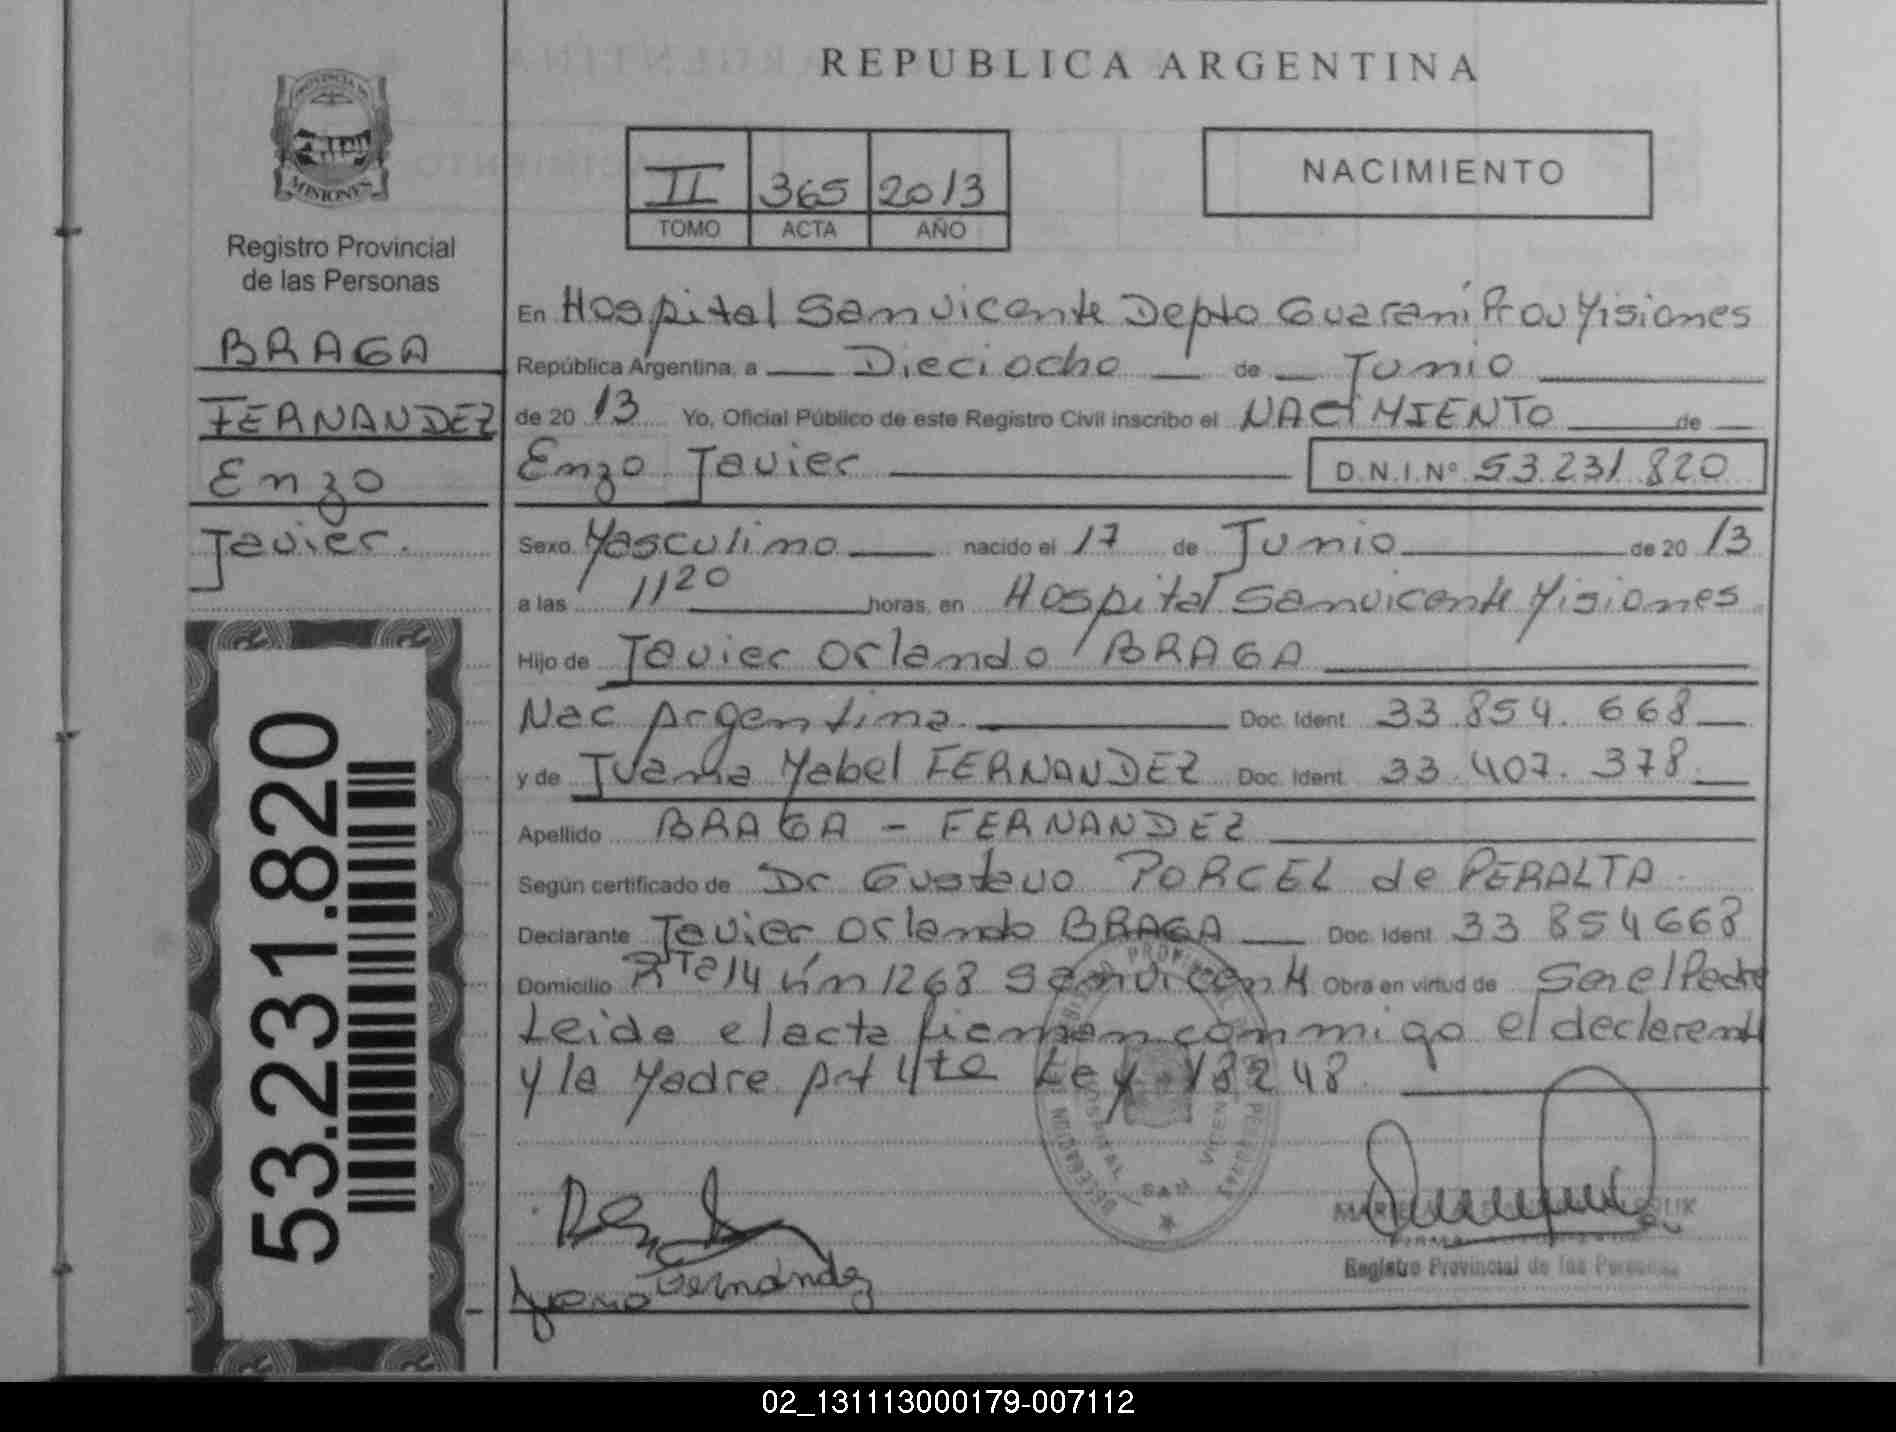 REPUBLICA ARGENTINA
PROVINCIA DE
MISIONES
Registro Provincial
de las Personas
BRAGA
FERNANDEZ
Enzo
Javier.
53.231.820
II 365 2013
TOMO ACTA AÑO
NACIMIENTO
En Hospital San vicente Depto Guaraní Prov Misiones
República Argentina, a Dieciocho de Junio
de 20 13 Yo, Oficial Público de este Registro Civil inscribo el NACIMIENTO de
Enzo Javier D.N.I.Nº 53.231.820
Sexo Masculino nacido el 17 de Junio de 20 13
a las 1120 horas, en Hospital San vicente Misiones
Hijo de Javier Orlando BRAGA
Nac Argentina. Doc. Ident. 33.854.668
y de Juana Mabel FERNANDEZ Doc. Ident. 33.407.378
Apellido BRAGA - FERNANDEZ
Según certificado de Dr Gustavo PORCEL de PERALTA
Declarante Javier Orlando BRAGA Doc. Ident. 33 854668
Domicilio Rta 14 km 1268 San vicente Obra en virtud de Ser el Padre
Leida el acta firman conmigo el declarente
y la Madre Art 4to Ley 18248
DELEGACION HOSPITAL SAN VICENTE
Juana Fernández
Registro Provincial de las Personas
02_131113000179-007112